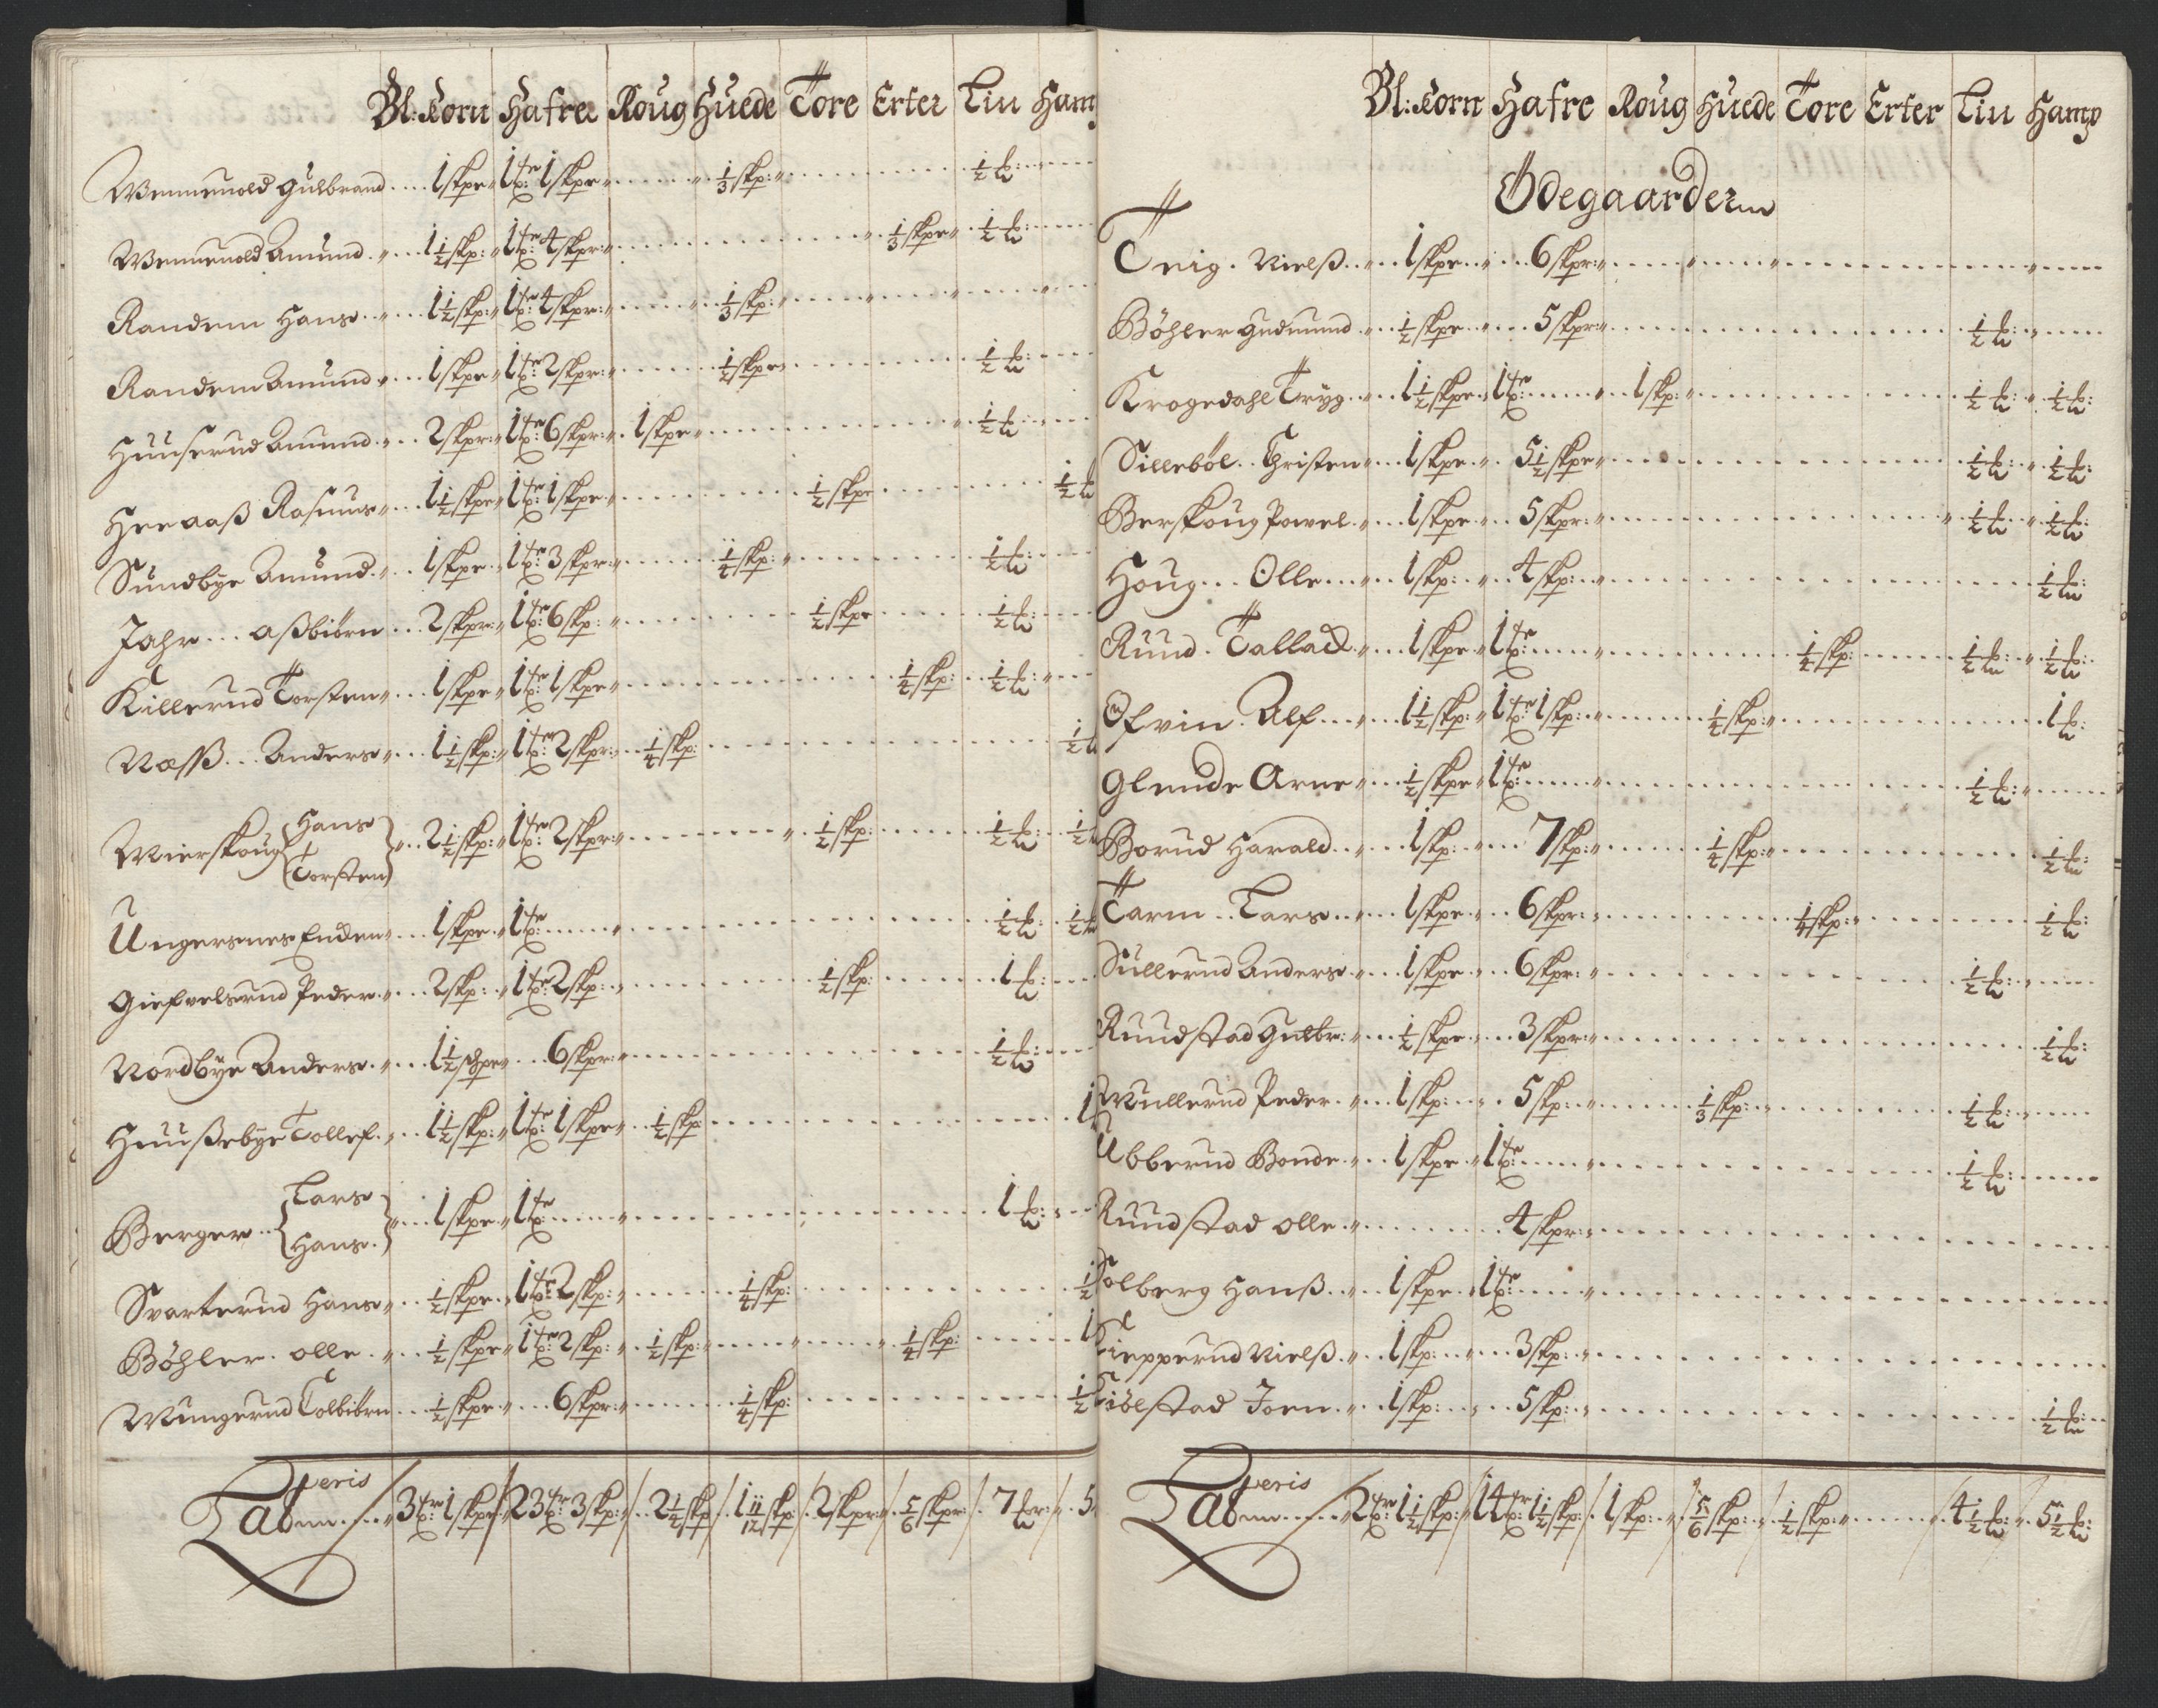 Bl: Korn Hafre Roug Huede Tore Erter Liu Ham
Wennenold Gulbrand 1 skpe 1 tr: 1 skpe 1/3 skp: 1/2 lb:
Wennenold Amund 1 1/2 skp: 1 tr: 4 skpr: 1/3 skpe 1/2 lb:
Randem Hans 1 1/2 skp: 1 tr: 4 skpr: 1/3 skp:
Randem Amund 1 skpe 1 tr: 2 skpr: 1/2 skpe 1/2 lb:
Huuserud Amund 2 skpr: 1 tr: 6 skpr: 1 skpe 1/2 lb:
Heeaaß Rasmus 1 1/2 skpe 1 tr: 1 skpe 1/2 skpe 1/2 lb
Sundbye Amund 1 skpe 1 tr: 3 skpr: 1/4 skp: 1/2 lb:
Jahr aßbiörn 2 skpr: 1 tr: 6 skp: 1/2 skpe 1/2 lb:
Killerud Torsten 1 skpe 1 tr: 1 skpe 1/4 skp: 1/2 lb:
Næsß Anders 1 1/2 skp: 1 tr: 2 skpr: 1/4 skp: 1/2 lb
Mierskoug Hans Torsten 2 1/2 skp: 1 tr: 2 skpr: 1/2 skp: 1/2 lb: 1/2
Ungersnes Enden 1 skpe 1 tr: 1/2 lb: 1/2 lb
Giefvelsrud Peder 2 skp: 1 tr: 2 skp: 1/2 skp: 1 lb:
Nordbye Anders 1 1/2 schpe 6 skpr: 1/2 lb:
Huußebye Tollef 1 1/2 skp: 1 tr: 1 skpe 1/2 skp: 1
Berger Lars Hans 1 skpe 1 tr: 1 lb:
Svarterud Hans 1/2 skpe 1 tr: 2 skp: 1/4 skp: 1/2
Böhler olle 1/2 skpe 1 tr: 2 skp: 1/2 skp: 1/4 skp: 1
Mungerud Tolbiörn 1/2 skpe 6 skpr: 1/4 skp: 1/2
Lateris 3 tr: 1 skpe 23 tr: 3 skp: 2 1/4 skp 1 11/12 skp: 2 skpr: 5/6 skpr: 7 lbr: 5
Bl: Korn Hafre Roug Huede Tore Erter Liu Hamp
Ödegaarder
Treig Nielß 1 skpe 6 skpr:
Böhler Gudmund 1/2 skpe 5 skpr: 1/2 lb:
Krogedahl Tryg 1 1/2 skpe 1 tr: 1 skp: 1/2 lb: 1/2 lb:
Silleböl Christen 1 skpe 5 1/2 skpe 1/2 lb: 1/2 lb:
Berskoug Powel 1 skpe 5 skpr: 1/2 lb: 1/2 lb:
Houg Olle 1 skp: 4 skp: 1/2 lb:
Ruud Tallack 1 skpe 1 tr: 1/4 skp: 1/2 lb: 1/2 lb:
Efvin Alf 1 1/2 skp: 1 tr: 1 skp: 1/4 skp: 1 lb:
Glende Arne 1/2 skpe 1 tr: 1/2 lb:
Borud Harald 1 skp: 7 skp: 1/4 skp: 1/2 lb:
Tarm Lars 1 skpe 6 skpr: 1/4 skp: 1/2 lb:
Sullerud Anders 1 skpe 6 skpr: 1/2 lb:
Ruudstad Gulbr: 1/2 skpe 3 skpr: 1/2 lb:
Mullerud Peder 1 skp: 5 skp: 1/3 skp: 1/2 lb:
Ubberud Bonde 1 skpe 1 tr: 1/2 lb:
Ruudstad olle 4 skpr:
Solberg Hanß 1 skpe 1 tr:
Kiepperud Nielß 1 skp: 3 skp:
Kiölstad Joen 1 skp: 5 skp: 1/2 lb:
Lateris 2 tr: 1 1/2 skp: 14 tr: 1 1/2 skp: 1 skp: 5/6 skp: 1/2 skp: 4 1/2 lb: 5 1/2 lb: